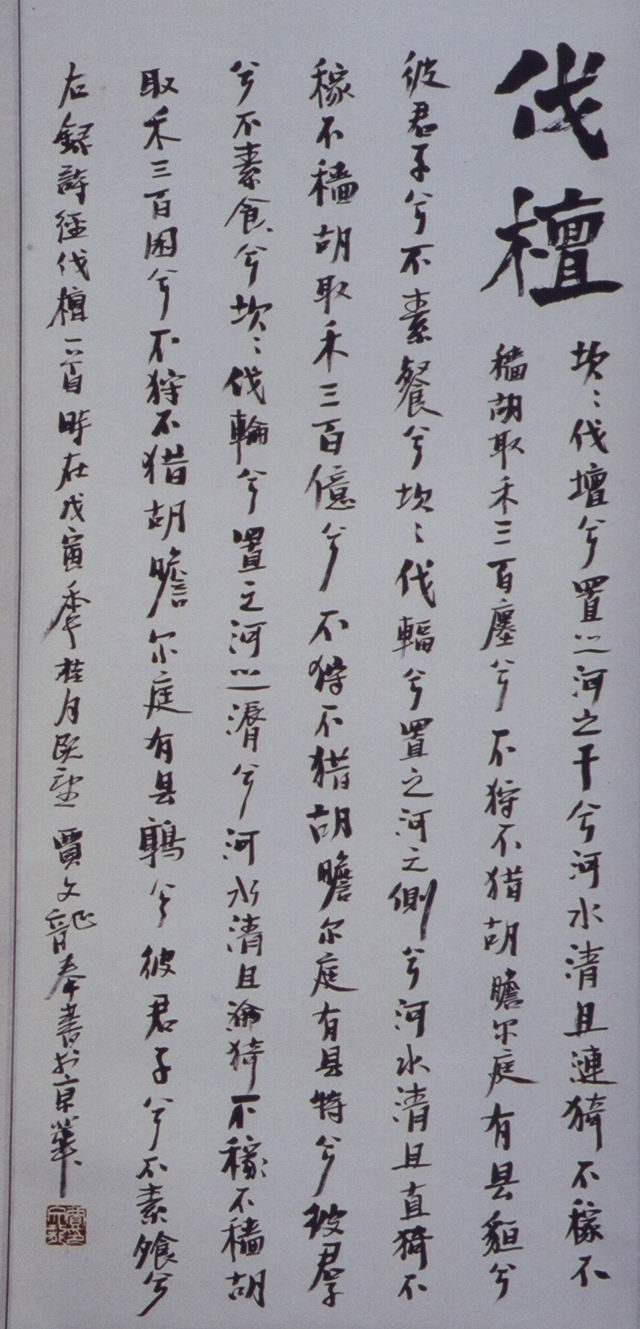 伐檀
坎ミ伐壇兮置之河之干兮河水清且漣猗不稼不
穡胡取禾三百廛兮不狩不猎胡瞻尔庭有县貆兮
彼君子兮不素餐兮坎ミ伐輻兮置之河之側兮河水清且直猗不
稼不穡胡取禾三百億兮不狩不猎胡瞻尔庭有县特兮彼君子
兮不素食兮坎ミ伐輪兮置之河之漘兮河水清且淪猗不稼不穡胡
取禾三百囷兮不狩不猎胡瞻尔庭有县鶉兮彼君子兮不素飧兮
右録詩經伐檀一首時在戊寅季桂月賈文龍奉書於京華